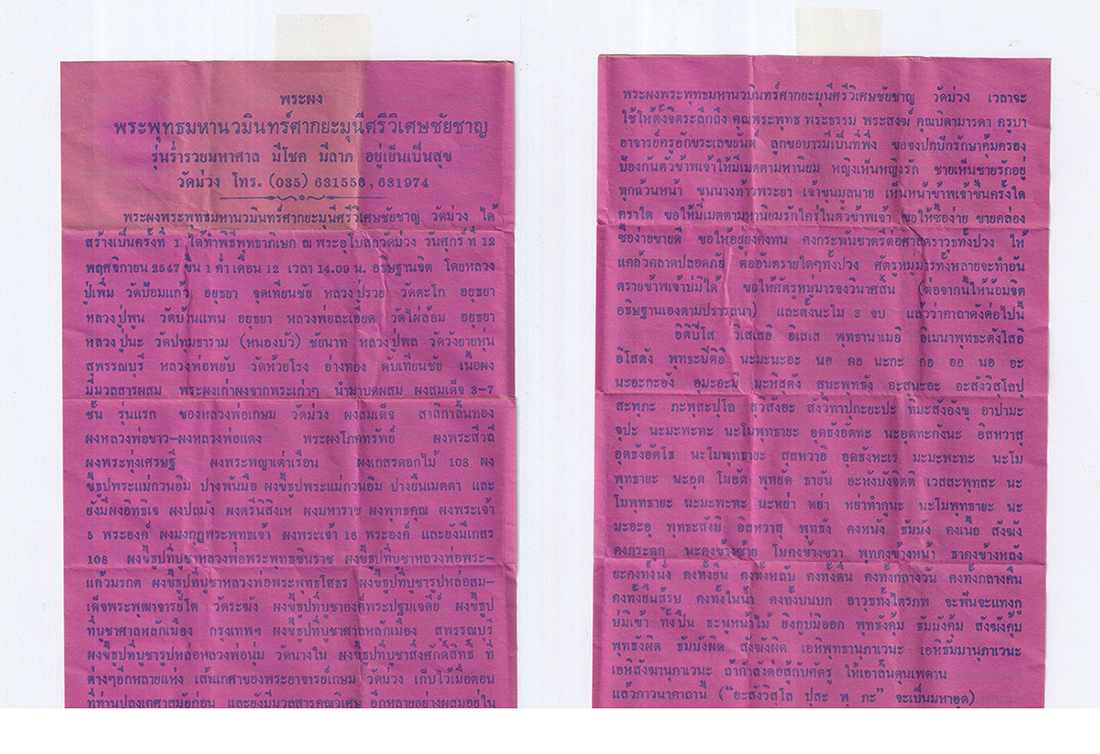 พระผง
พระพุทธมหานวมินทร์ศากยะมุนีศรีวิเศษชัยชาญ
รุ่นร่ำรวยมหาศาล มีโชค มีลาภ อยู่เย็นเป็นสุข
วัดม่วง โทร. (035) 631556, 631974
พระผงพระพุทธมหานวมินทร์ศากยะมุนีศรีวิเศษชัยชาญ วัดม่วง ได้
สร้างเป็นครั้งที่ 1 ได้ทำพิธีพุทธาภิเษก ณ พระอุโบสถวัดม่วง วันศุกร์ ที่ 12
พฤศจิกายน 2547 ขึ้น 1 ค่ำ เดือน 12 เวลา 14.09 น. อธิษฐานจิต โดยหลวง
ปู่เพิ่ม วัดป้อมแก้ว อยุธยา จุดเทียนชัย หลวงปู่รวย วัดตะโก อยุธยา
หลวงปู่พูน วัดบ้านแพน อยุธยา หลวงพ่อละเอียด วัดไผ่ล้อม อยุธยา
หลวงปู่นะ วัดปทุมธาราม (หนองบัว) ชัยนาท หลวงปู่พล วัดวังยายหุ่น
สุพรรณบุรี หลวงพ่อพยับ วัดห้วยโรง อ่างทอง ดับเทียนชัย เนื้อผง
มีมวลสารผสม พระผงเก่าผงจากพระเก่าๆ นำมาบดผสม ผงสมเด็จ 3-7
ชั้น รุ่นแรก ของหลวงพ่อเกษม วัดม่วง ผงสมเด็จ สาลิกาลิ้นทอง
ผงหลวงพ่อขาว-ผงหลวงพ่อแดง พระผงโภคทรัพย์ ผงพระสีวลี
ผงพระทุ่งเศรษฐี ผงพระพญาเต่าเรือน ผงเกสรดอกไม้ 108 ผง
ขี้ธูปพระแม่กวนอิม ปางพันมือ ผงขี้ธูปพระแม่กวนอิม ปางยืนเมตตา และ
ยังมีผงอิทธิเจ ผงปถมัง ผงตรีนิสิงเห ผงมหาราช ผงพุทธคุณ ผงพระเจ้า
5 พระองค์ ผงมงกุฎพระพุทธเจ้า ผงพระเจ้า 16 พระองค์ และยังมีเกสร
108 ผงขี้ธูปที่บูชาหลวงพ่อพระพุทธชินราช ผงขี้ธูปที่บูชาหลวงพ่อพระ-
แก้วมรกต ผงขี้ธูปที่บูชาหลวงพ่อพระพุทธโสธร ผงขี้ธูปที่บูชารูปหล่อสม-
เด็จพระพุฒาจารย์โต วัดระฆัง ผงขี้ธูปที่บูชาองค์พระปฐมเจดีย์ ผงขี้ธูป
ที่บูชาศาลหลักเมือง กรุงเทพฯ ผงขี้ธูปที่บูชาศาลหลักเมือง สุพรรณบุรี
ผงขี้ธูปที่บูชารูปหล่อหลวงพ่อนุ่ม วัดนางใน ผงขี้ธูปที่บูชาสิ่งศักดิ์สิทธิ์ ที่
ต่างๆอีกหลายแห่ง เส้นเกศาของพระอาจารย์เกษม วัดม่วง เก็บไว้เมื่อตอน
ที่ท่านปลงเกศาสมัยก่อน และยังมีมวลสารคุณวิเศษ อีกหลายอย่างผสมอยู่ใน
พระผงพระพุทธมหานวมินทร์ศากยะมุนีศรีวิเศษชัยชาญ วัดม่วง เวลาจะ
ใช้ให้ตั้งจิตระลึกถึง คุณพระพุทธ พระธรรม พระสงฆ์ คุณบิดามารดา ครูบา
อาจารย์ครูอักขระเลขยันต์ ลูกขอบารมีเป็นที่พึ่ง ขอจงปกปักรักษาคุ้มครอง
ป้องกันตัวข้าพเจ้าให้มีเมตตามหานิยม หญิงเห็นหญิงรัก ชายเห็นชายรักอยู่
ทุกถ้วนหน้า ขุนนางท้าวพระยา เจ้าขุนมูลนาย เห็นหน้าข้าพเจ้าขึ้นครั้งใด
คราใด ขอให้มีเมตตามหานิยมรักใคร่ในตัวข้าพเจ้า ขอให้ซื้อง่าย ขายคล่อง
ซื้อง่ายขายดี ขอให้อยู่ยงคงทน คงกระพันชาตรีต่อศาสตราวุธทั้งปวง ให้
แคล้วคลาดปลอดภัย ต่ออันตรายใดๆทั้งปวง ศัตรูหมู่มารทั้งหลายจะทำอัน
ตรายข้าพเจ้าบ่มิได้ ขอให้ศัตรูหมู่มารจงวินาศสิ้น (ต่อจากนี้ให้น้อมจิต
อธิษฐานเองตามปรารถนา) และตั้งนะโม 3 จบ แล้วว่าคาถาดังต่อไปนี้
อิติปิโส วิเสเสอิ อิเสเส พุทธานาเมอิ อิเมนาพุทธะตังโสอิ
อิโสตัง พุทธะปิติอิ นะมะนะอะ นอ กอ นะกะ กอ ออ นอ อะ
นะอะกะอัง อุมะอะมิ มะหิสุตัง สุนะพุทธัง อะสุนะอะ อะสังวิสุโลปุ
สะพุภะ ภะพุสะปุโล สุวิสังอะ สังวิทาปุกะยะปะ ทิมะสังอังขุ อาปามะ
จุปะ นะมะพะทะ นะโมพุทธายะ อุดธังอัตทะ นะอุดทะกังนะ อิสหวาสุ
อุดธังอัตโธ นะโมพุทธายะ สุสหวาอิ อุดธังหะเว มะมะพะทะ นะโม
พุทธายะ นะอุด โมอัด พุทยัด ธายัน อะหังปังจิตติ เวสสะพุทสะ นะ
โมพุทธายะ นะมะพะทะ นะหย่า หย่า หย่าทำกูนะ นะโมพุทธายะ นะ
มะอะอุ พุทธะสังมิ อิสหวาสุ พุทธัง คงหนัง ธัมมัง คงเนื้อ สังฆัง
คงกระดูก นะคงข้างซ้าย โมคงข้างขวา พุทคงข้างหน้า ธาคงข้างหลัง
ยะคงทั้งนั่ง คงทั้งยืน คงทั้งหลับ คงทั้งตื่น คงทั้งกลางวัน คงทั้งกลางคืน
คงทั้งยืนสิ้รบ คงทั้งในน้ำ คงทั้งบนบก อาวุธทั้งไตรภพ จะฟันจะแทงก็
บ่มิเข้า ทั้งปืน ธะนูหน้าไม้ ยิงกูบ่มิออก พุทธังคุ้ม ธัมมังคุ้ม สังฆังคุ้ม
พุทธังผิด ธัมมังผิด สังฆังผิด เอหิพุทธานุภาเวนะ เอหิธัมมานุภาเวนะ
เอหิสังฆานุภาเวนะ ถ้ากำลังต่อสู้กับศัตรู ให้เอาลิ้นดุนเพดาน
แล้วภาวนาคาถานี้ ("อะสังวิสุโล ปุสะ พุ ภะ" จะเป็นมหาอุด)